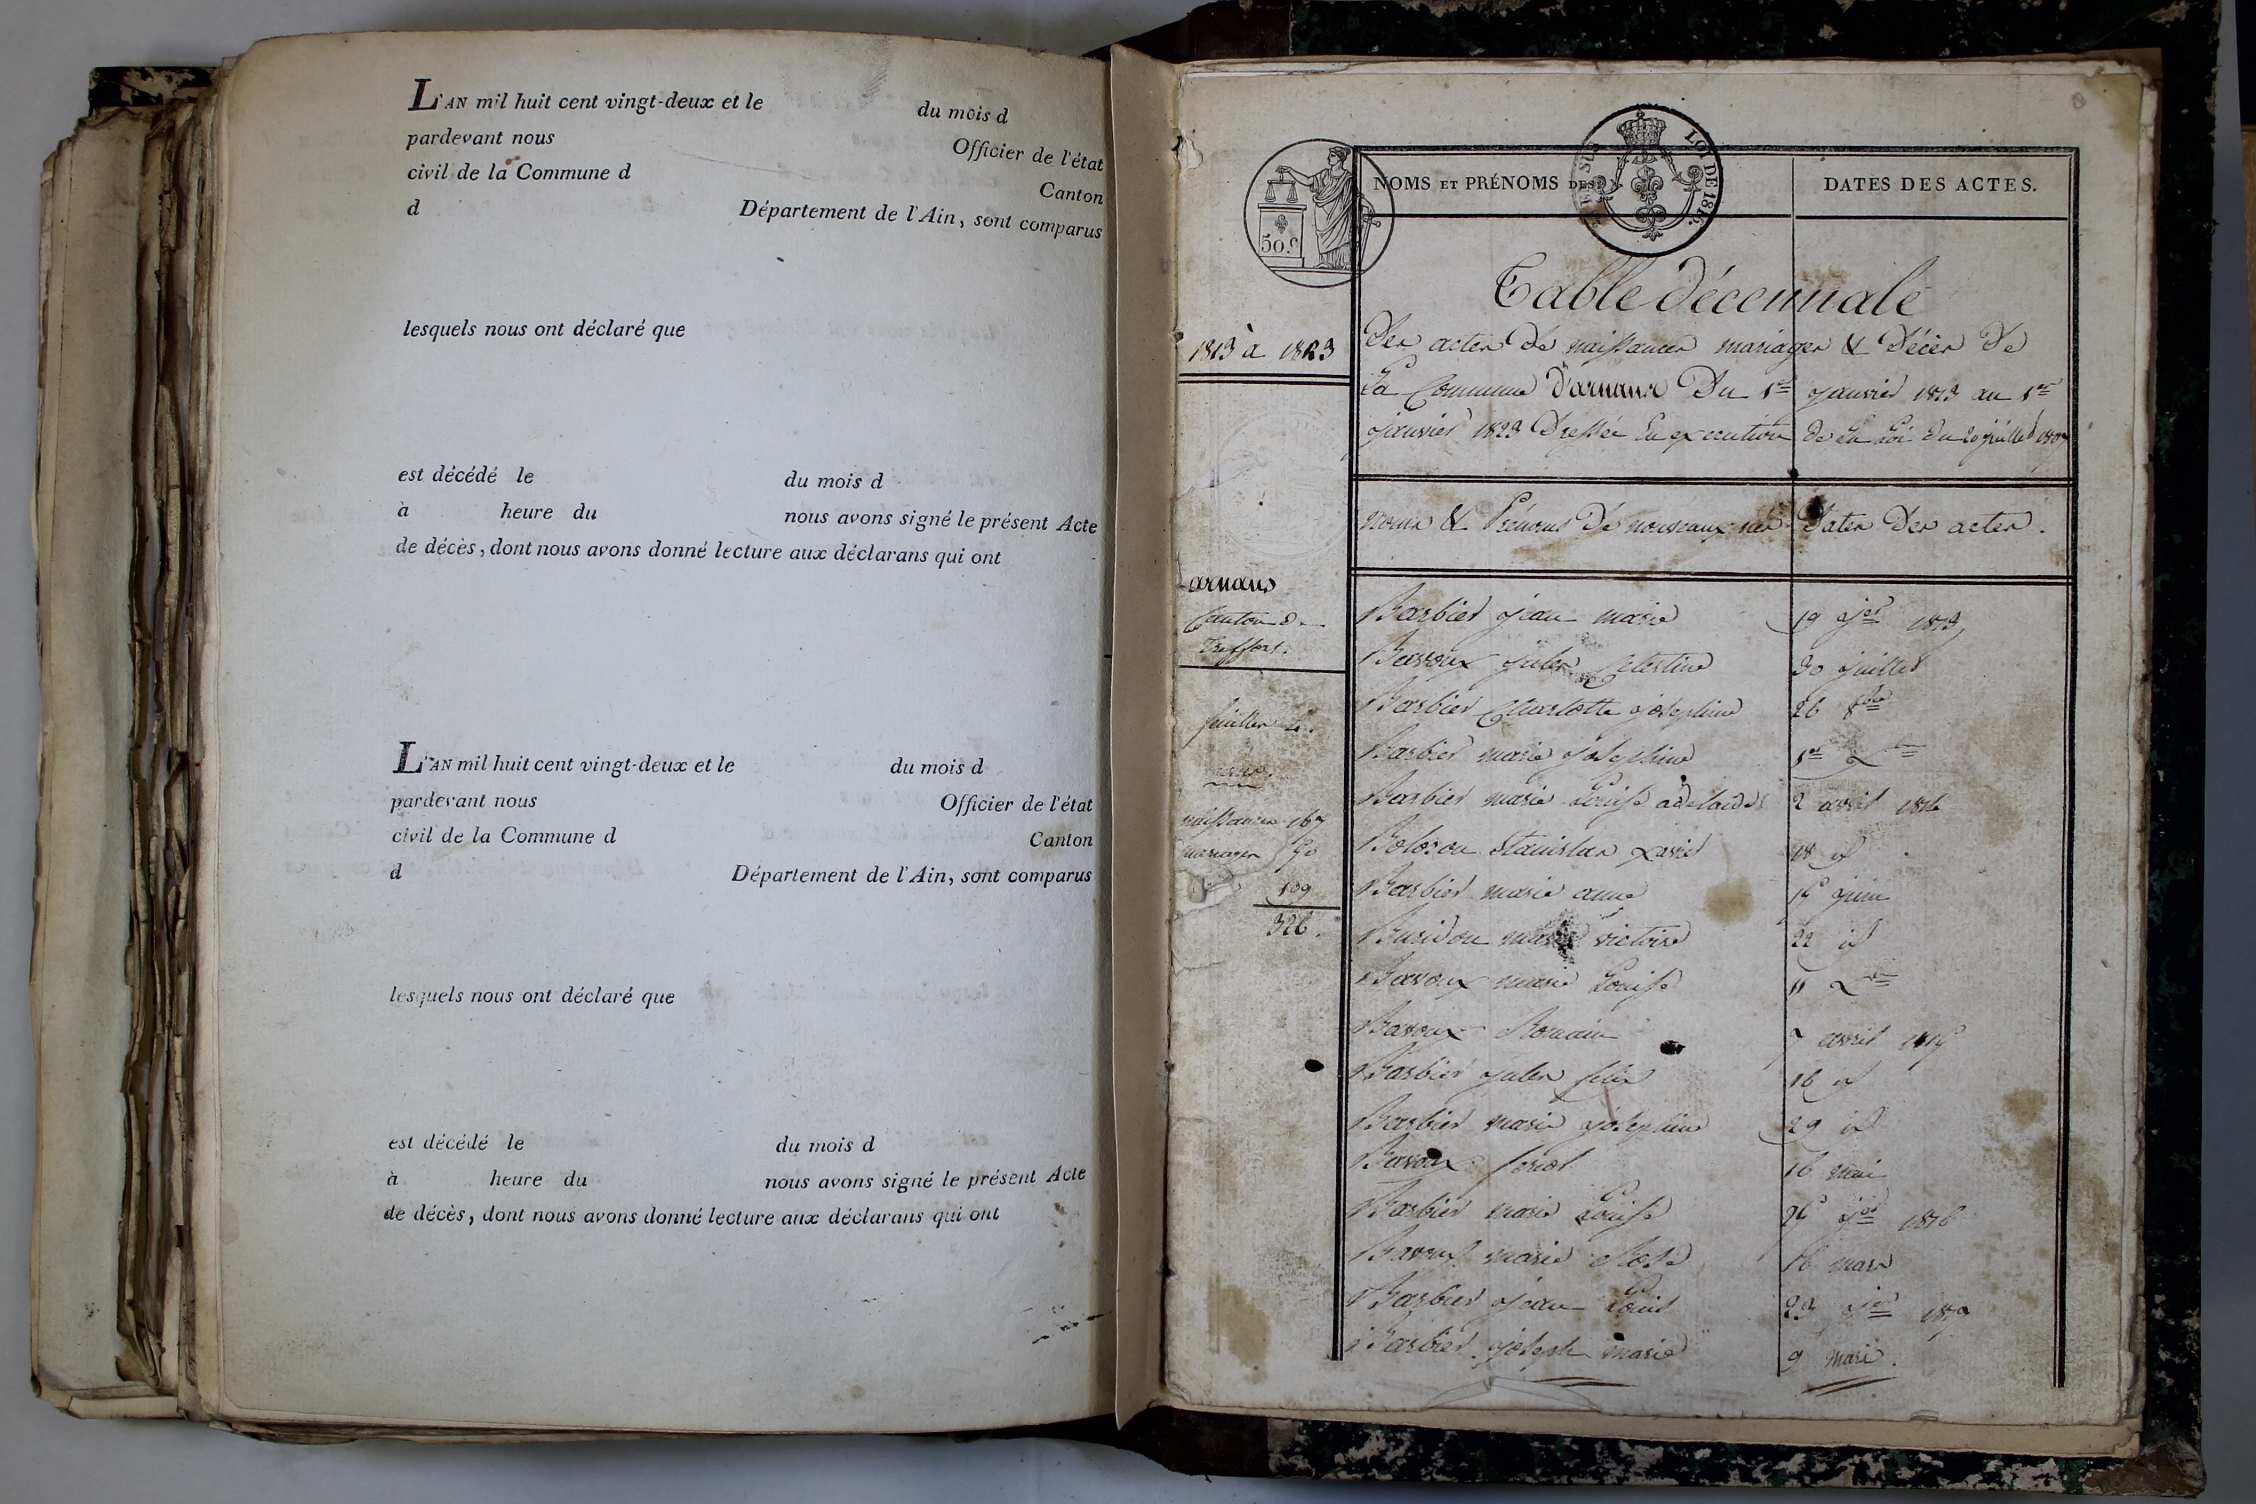 L'AN mil huit cent vingt-deux et le du mois d
pardevant nous Officier de l'état
civil de la Commune d Canton
d Département de l'Ain, sont comparus
lesquels nous ont déclaré que
est décédé le du mois d
à heure du nous avons signé le présent Acte
de décès, dont nous avons donné lecture aux déclarans qui ont
L'AN mil huit cent vingt-deux et le du mois d
pardevant nous Officier de l'état
civil de la Commune d Canton
d Département de l'Ain, sont comparus
lesquels nous ont déclaré que
est décédé le du mois d
à heure du nous avons signé le présent Acte
de décès, dont nous avons donné lecture aux déclarans qui ont
LOI DE 1816.
50.c
NOMS ET PRÉNOMS DES DATES DES ACTES.
1813 à 1823
Table décennale
Des actes de naissances mariages & décès de
La Commune d'arnans Du 1er janvier 1813 au 1er
janvier 1823 Dressée en execution de la Loi du 20 juillet 1807
noms & Prénoms de nouveaux nés dates des actes.
arnans
Canton de
Treffort.
naissances 167
mariages 50
109
326.
Barbier jean marie 19 jer 1813
Bavoux jules Celestine 30 juillet
Barbier Charlotte josephine 26 8bre
Barbier marie josephine 1er Xbre
Barbier marie Louise adelaide 2 avril 1814
Bolozon Stanislas Xavier 18 id
Barbier marie anne 15 juin
Buridon marie victoire 22 id
Bavoux marie Louise 11 Xbre
Bavoux Romain 7 avril 1815
Barbier jules felix 16 id
Barbier marie josephine 29 id
Bavoux 16 mai
Barbier marie Louise 25 jer 1816
Bavoux marie Rose 16 mars
Barbier jean Louis 23 jer 1817
Barbier joseph marie 9 mars.